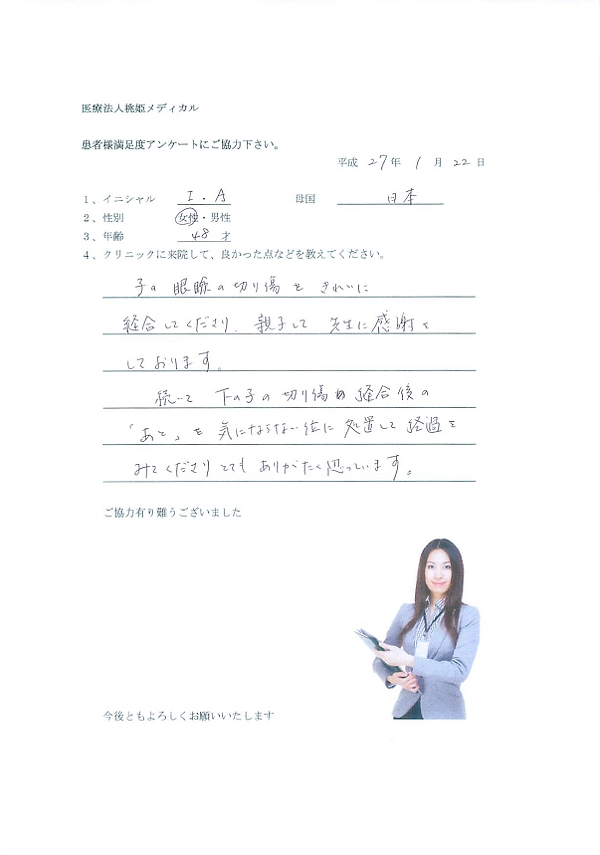 医療法人桃姫メディカル
患者様満足度アンケートにご協力下さい。
平成 27年 1月 22日
1、イニシャル I.A 母国 日本
2、性別 女性・男性
3、年齢 48才
4、クリニックに来院して、良かった点などを教えてください。
子の 眼瞼の切り傷を きれいに
縫合してくださり、親子して 先生に感謝を
しております。
続いて 下の子の 切り傷も 縫合後の
「あと」を 気にならない位に 処置して 経過を
みてくださりとても ありがたく思っています。
ご協力有り難うございました
今後ともよろしくお願いいたします